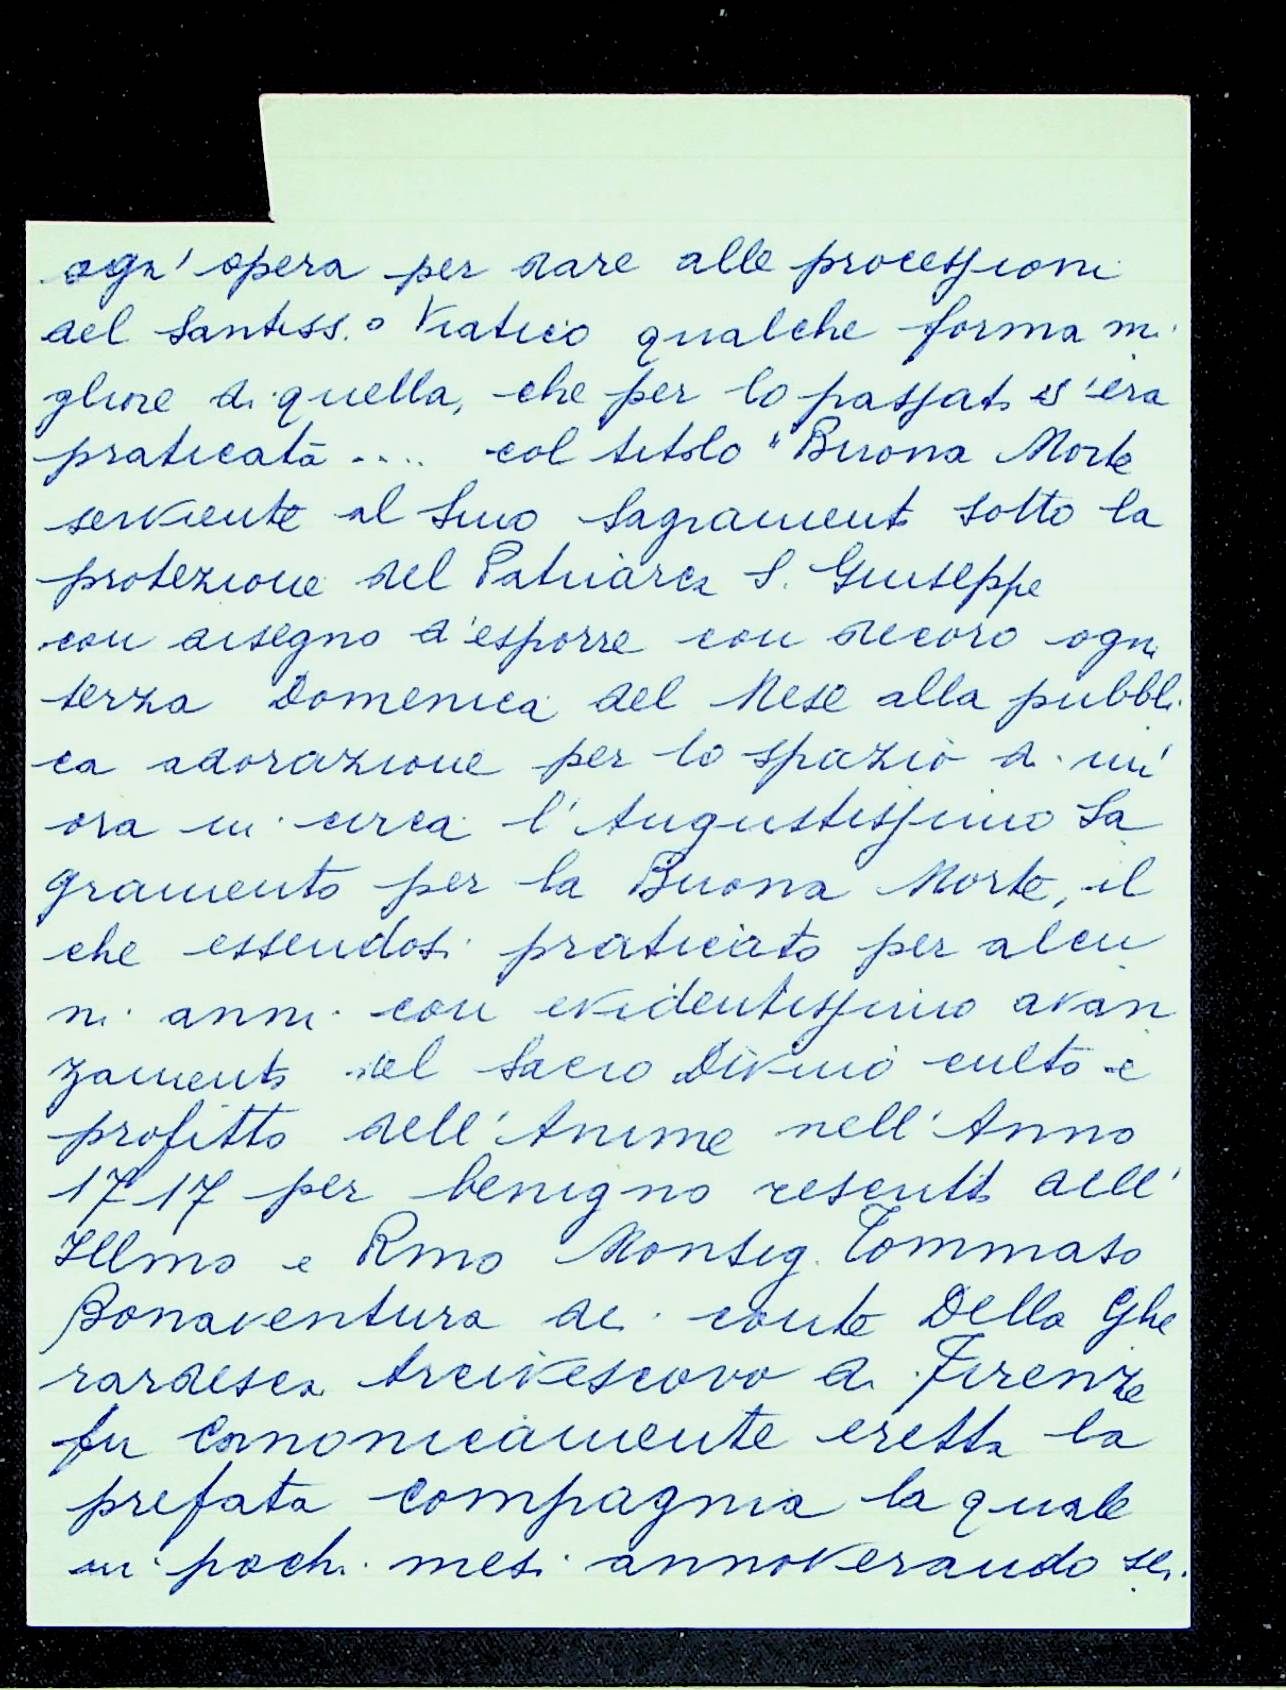 ogn' opera per dare alle processioni
del Santiss.o Viatico qualche forma mi
gliore di quella, che per lo passato s'era
praticata .... col titolo "Buona Morte
serviente al Smo Sagramento sotto la
protezione del Patriarca S. Giuseppe
con disegno d'esporre con decoro ogni
terza Domenica del Mese alla pubbli
ca adorazione per lo spazio di un'
ora in circa l'Augustissimo Sa
gramento per la Buona Morte, il
che essendosi praticato per alcu
ni anni con evidentissimo avan
zamento del Sacro Divino culto e
profitto dell'Anime nell'Anno
1717 per benigno rescritto dell'
Illmo e Rmo Monsig. Tommaso
Bonaventura dei conte Della Ghe
rardesca Arcivescovo di Firenze
fu Canonicamente eretta la
prefata Compagnia la quale
in pochi mesi annoverando sei.